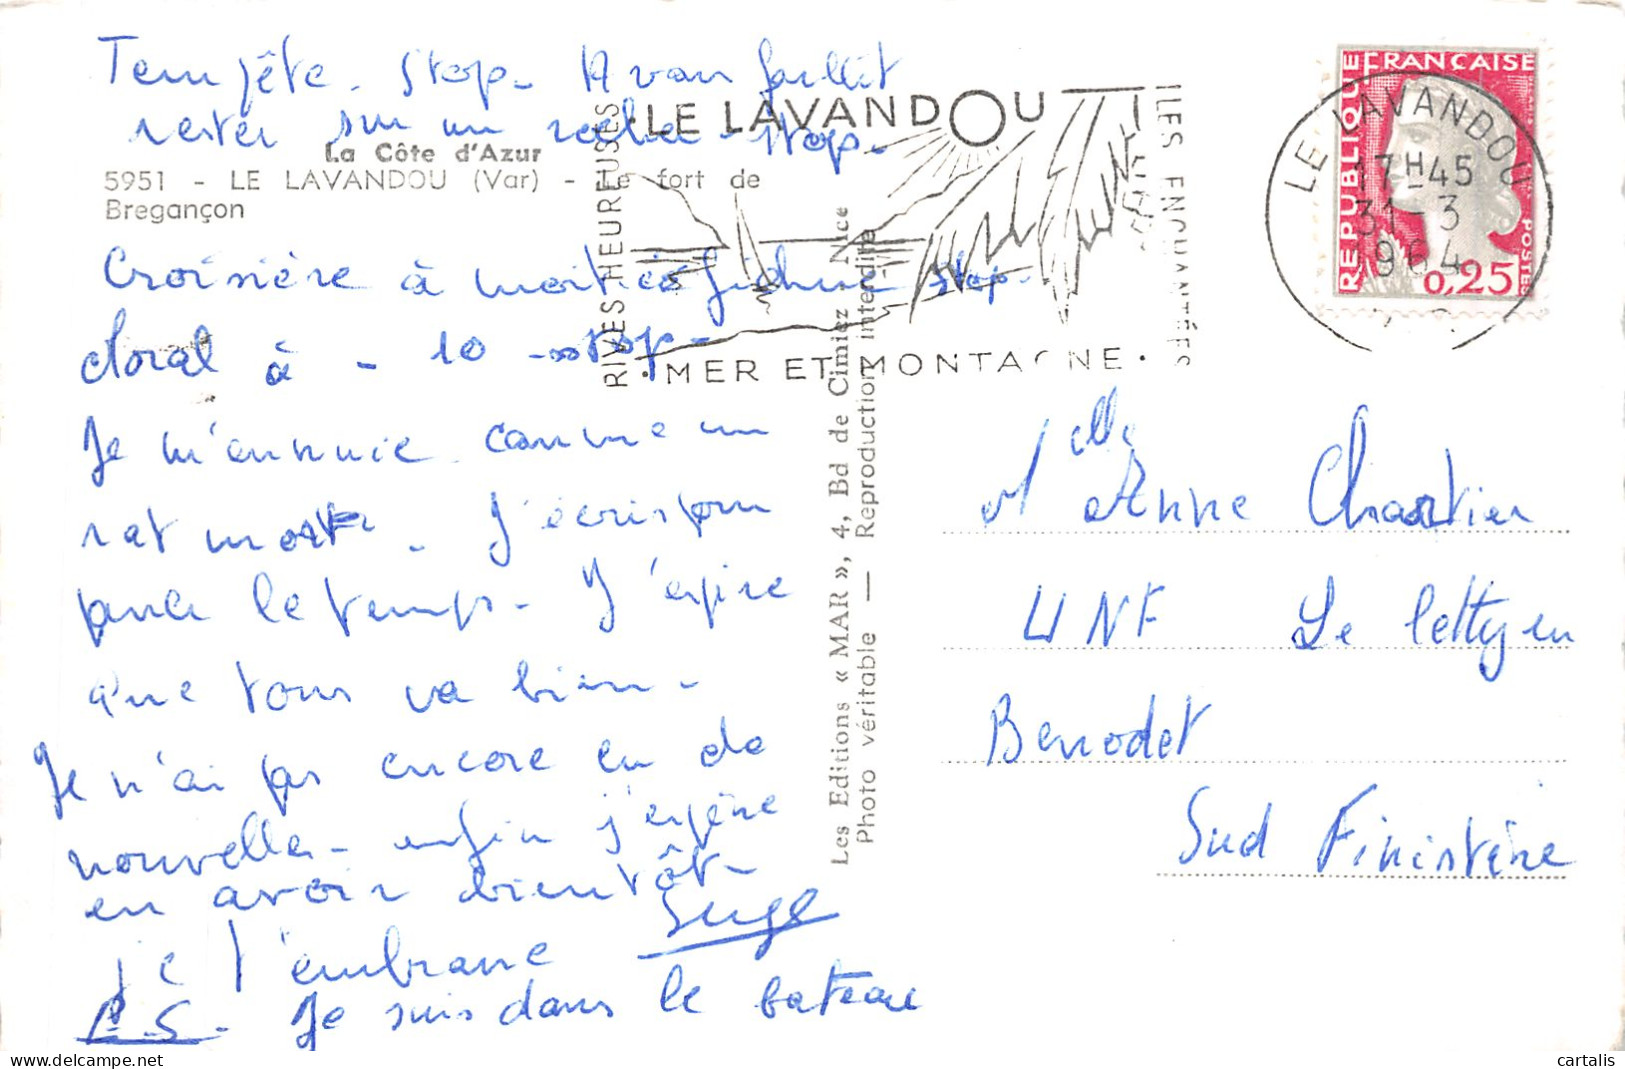 Tempête - Stop - Avons failli
rester sur un roche - stop -
La Côte d'Azur
5951 - LE LAVANDOU (Var) - Le fort de
Bregançon
Croisière à moitié fichue stop -
moral à - 10 - stop -
Je m'ennuie comme un
rat mort - J'écris pour
passer le temps - J'espère
que tous va bien -
Je n'ai pas encore eu de
nouvelles - enfin j'espère
en avoir bientôt -
je t'embrasse Serge
P.S - Je suis dans le bateau
Les Editions « MAR », 4, Bd de Cimiez, Nice
Photo véritable — Reproduction interdite
RIVES HEUREUSES
· LE LAVANDOU
ILES ENCHANTÉES
· MER ET MONTAGNE ·
REPUBLIQUE FRANÇAISE
POSTES
0,25
LE LAVANDOU
17H45
31-3
1964
Mlle Anne Chartier
UNF Le Letty en
Benodet
Sud Finistère
cartalis